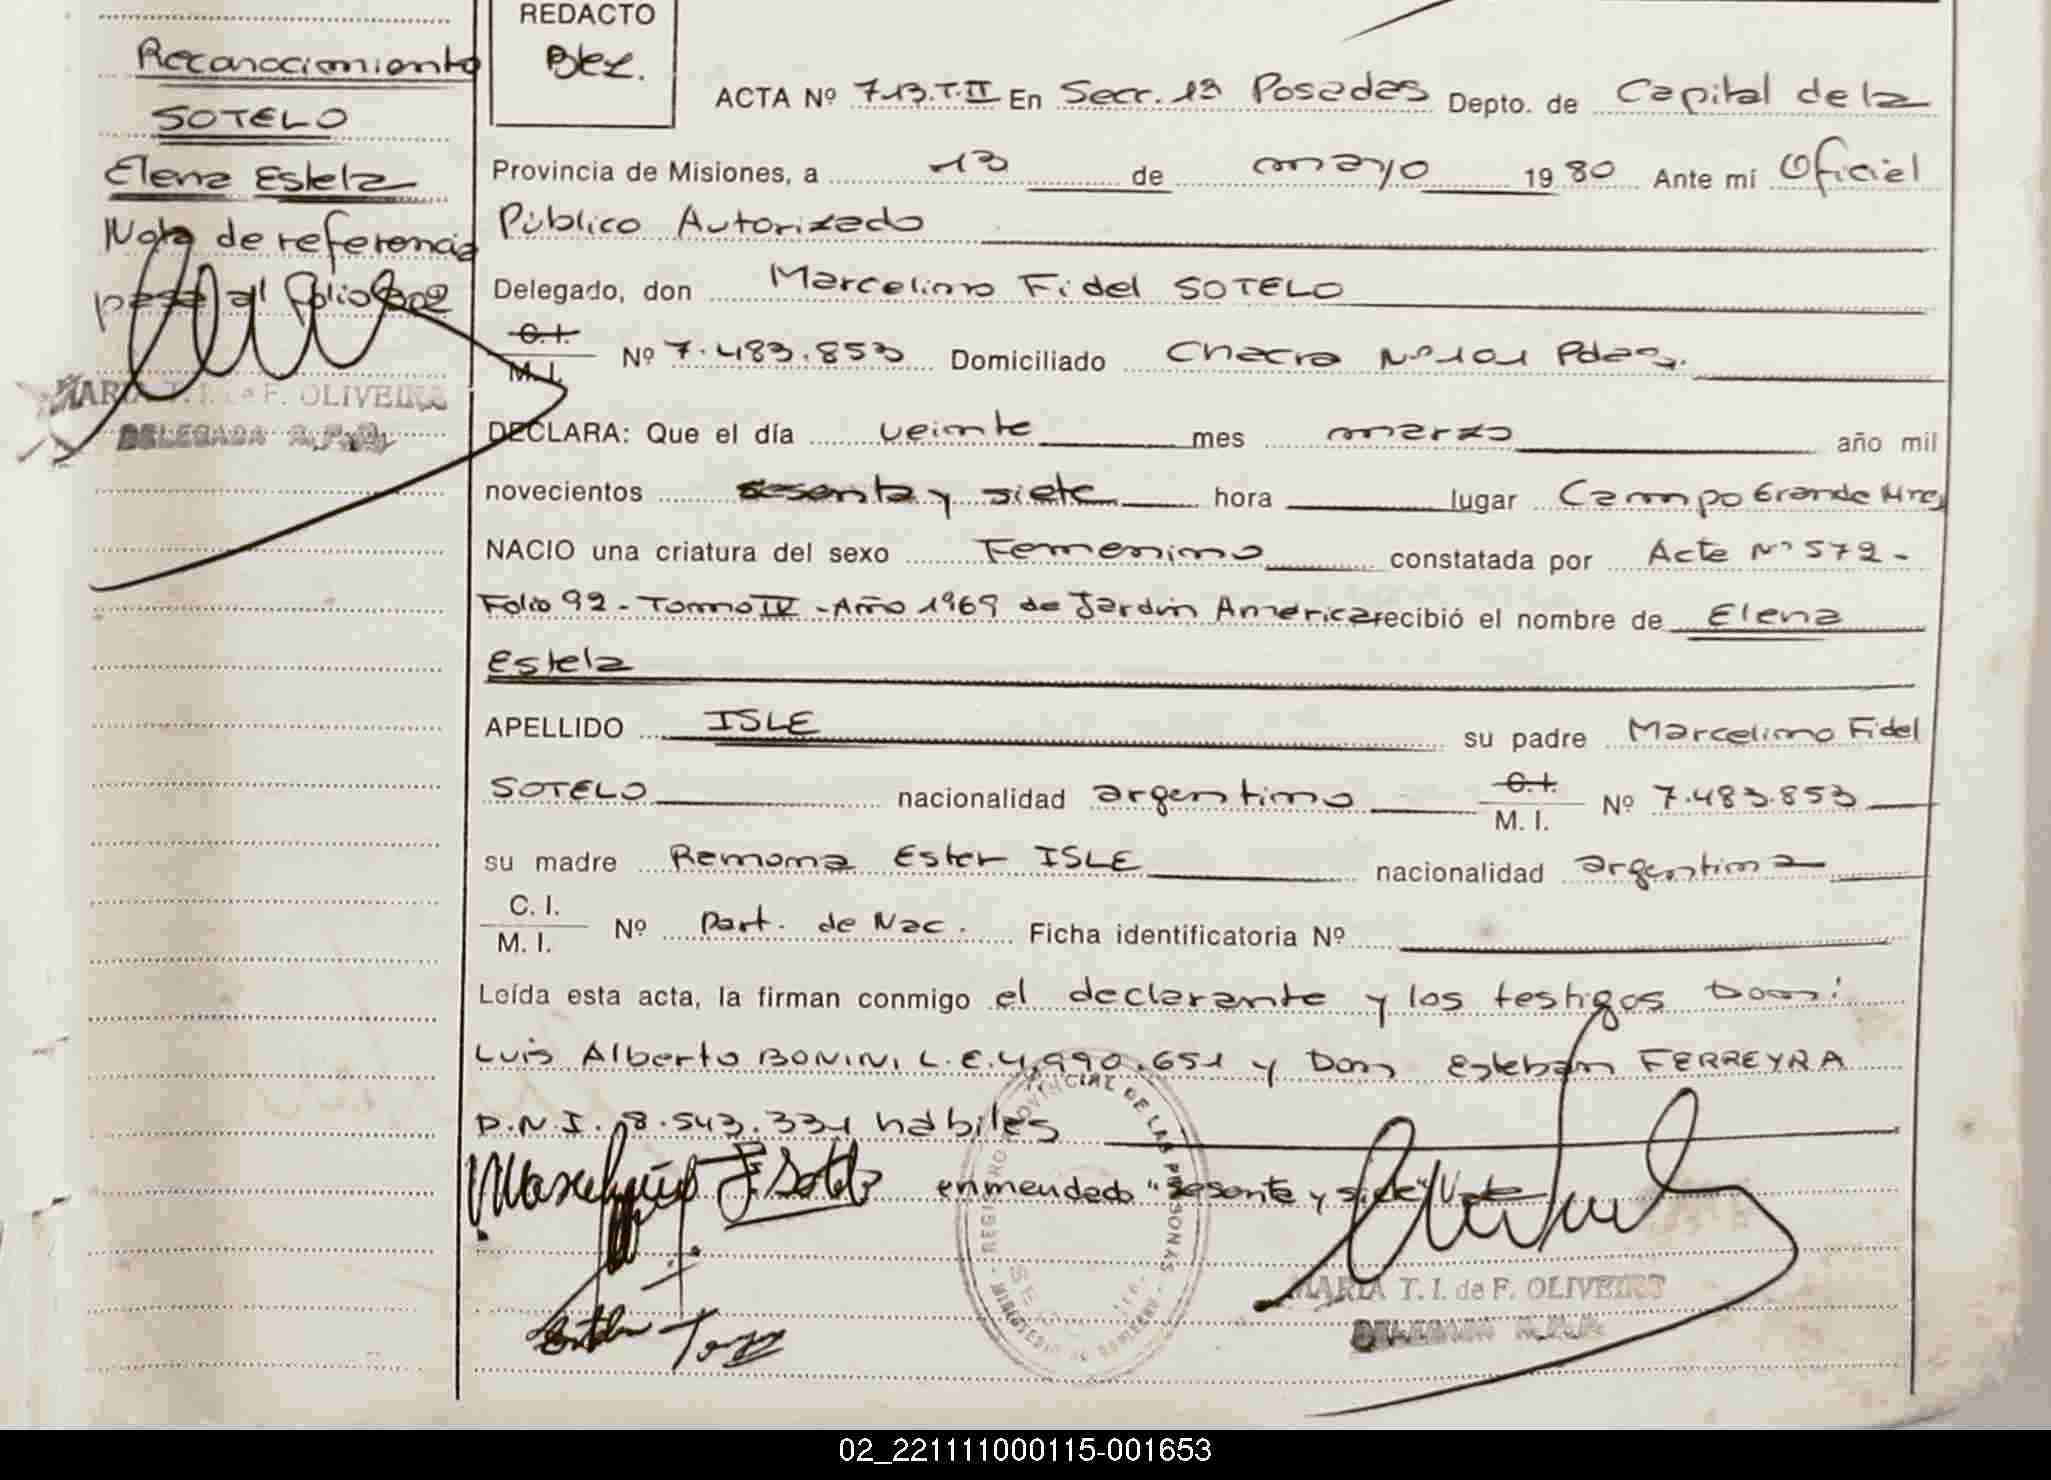 Reconocimiento
SOTELO
Elena Estela
Nota de referencia
pasa al folio
MARIA T. I. de F. OLIVEIRA
DELEGADA R.P.P.
REDACTO
ACTA Nº 713.T.II En Secr. 13 Posadas Depto. de Capital de la
Provincia de Misiones, a 13 de mayo 1980 Ante mí Oficial
Público Autorizado
Delegado, don Marcelino Fidel SOTELO
C.I.
M.I. Nº 7.483.853 Domiciliado Chacra Nº 101 Pdas.
DECLARA: Que el día veinte mes marzo año mil
novecientos sesenta y siete hora lugar Campo Grande Mnes
NACIO una criatura del sexo Femenino constatada por Acta Nº 572-
Folio 92 - Tomo IV - Año 1969 de Jardin America recibió el nombre de Elena
Estela
APELLIDO ISLE su padre Marcelino Fidel
SOTELO nacionalidad argentino C.I.
M. I. Nº 7.483.853
su madre Ramona Ester ISLE nacionalidad argentina
C. I.
M. I. Nº Part. de Nac. Ficha identificatoria Nº
Leída esta acta, la firman conmigo el declarante y los testigos Don:
Luis Alberto BONINI L.E. 4.990.651 y Don Esteban FERREYRA
D.N.I. 8.543.331 habiles
enmendado "sesenta y siete" Vale
REGISTRO PROVINCIAL DE LAS PERSONAS
MINISTERIO DE GOBIERNO
MARIA T. I. de F. OLIVEIRA
DELEGADA R.P.P.
02_221111000115-001653